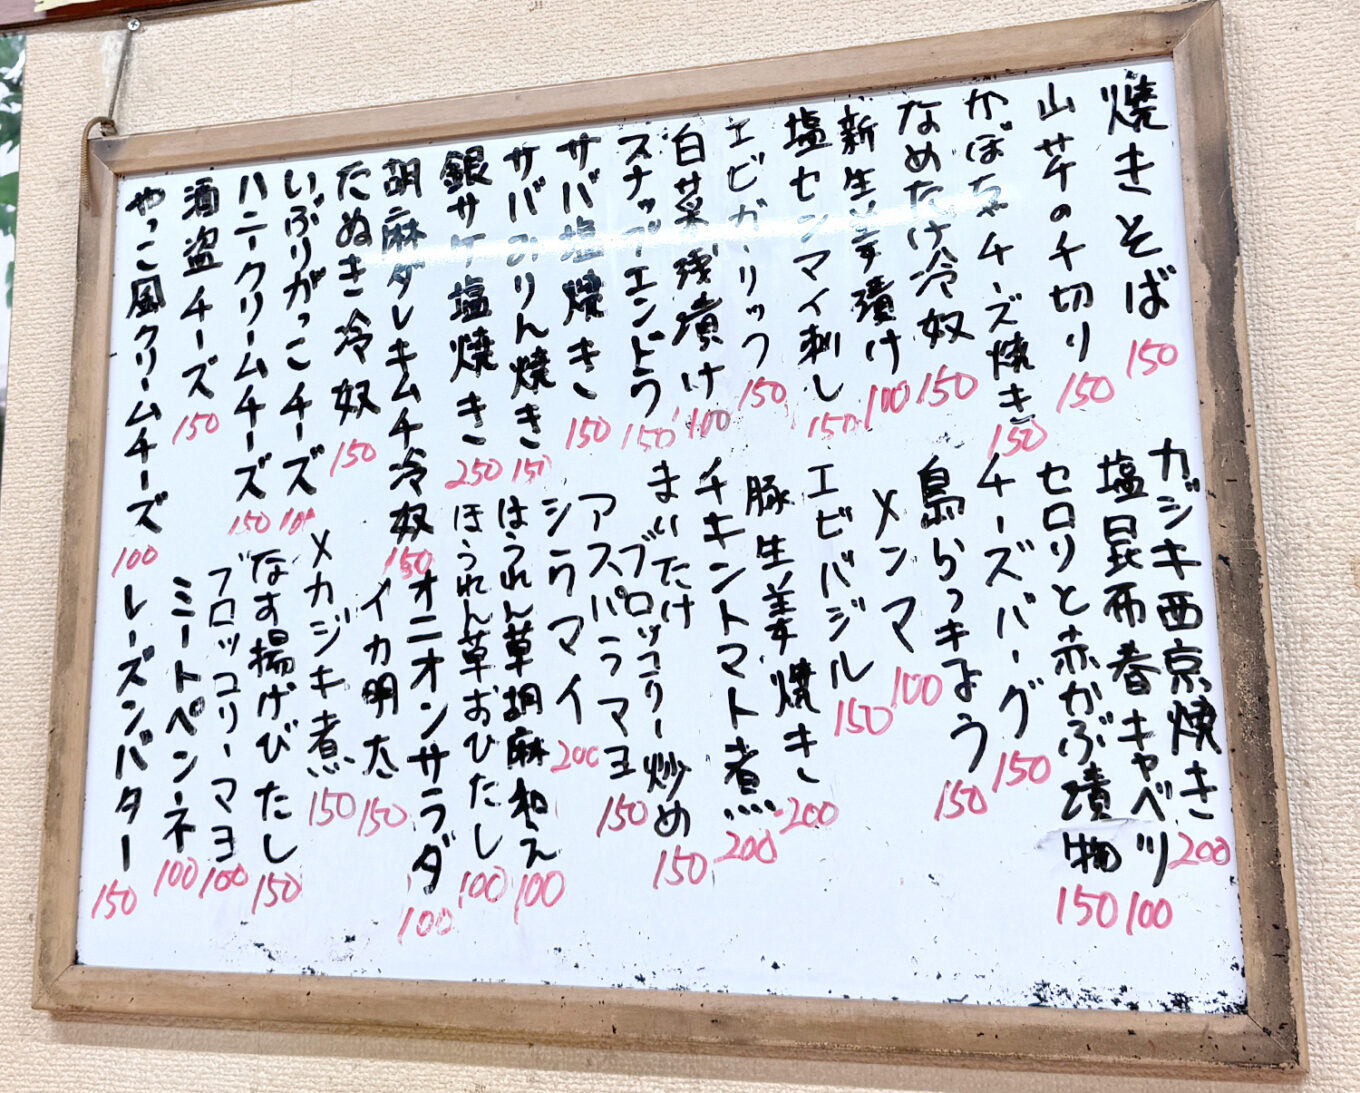 焼きそば 150
山芋の千切り 150
かぼちゃチーズ焼き 150
なめたけ冷奴 150
新生姜漬け 100
塩センマイ刺し 150
エビガーリック 150
白菜浅漬け 100
スナップエンドウ 150
サバ塩焼き 150
サバみりん焼き 150
銀サケ塩焼き 250
胡麻ダレキムチ冷奴 150
たぬき冷奴 150
いぶりがっこチーズ 100
ハニークリームチーズ 150
酒盗チーズ 150
やっこ風クリームチーズ 100
カジキ西京焼き 200
塩昆布春キャベツ 100
セロリと赤かぶ漬物 150
チーズバーグ 150
島らっきょう 150
メンマ 100
エビバジル 150
豚生姜焼き 200
チキントマト煮 200
まいたけ
ブロッコリー炒め 150
アスパラマヨ 150
シウマイ 200
ほうれん草胡麻和え 100
ほうれん草おひたし 100
オニオンサラダ 100
イカ明太 150
メカジキ煮 150
なす揚げびたし 150
ブロッコリーマヨ 100
ミートペンネ 100
レーズンバター 150